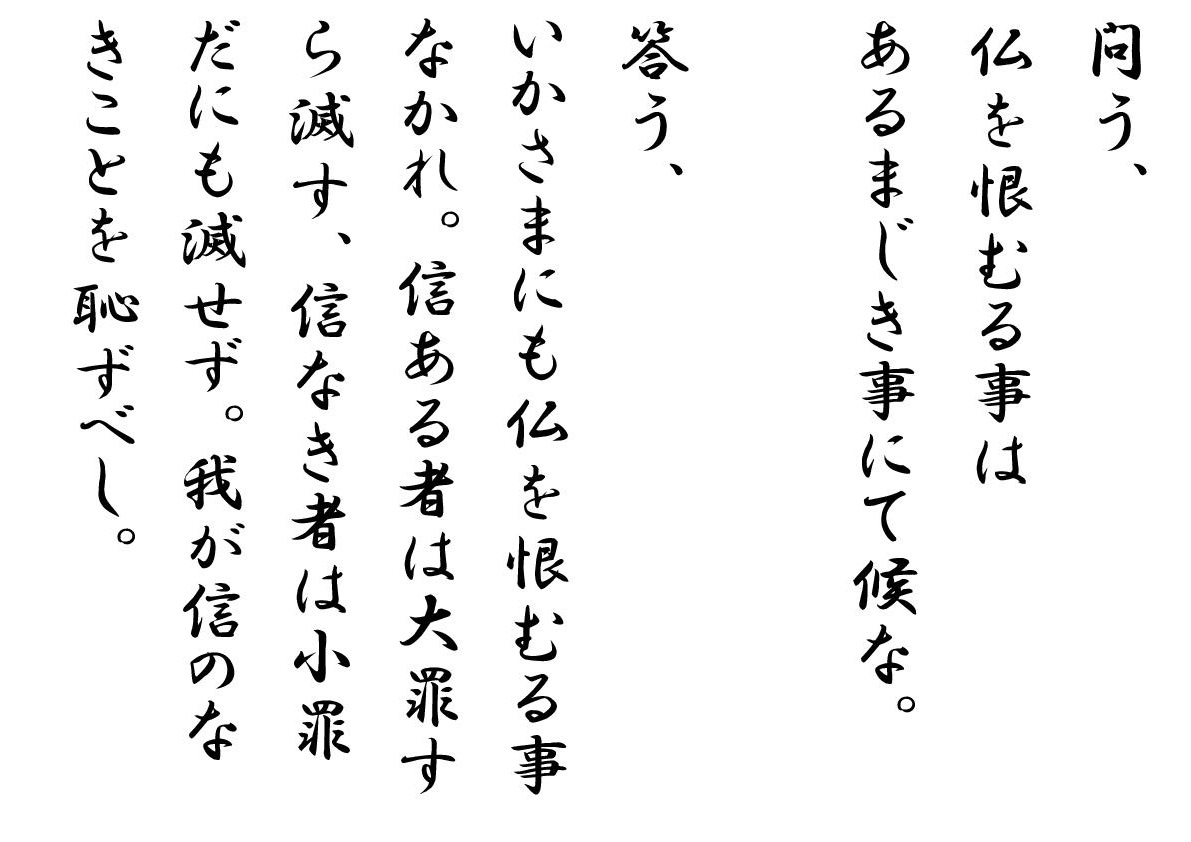 問う、
仏を恨むる事は
あるまじき事にて候な。
答う、
いかさまにも仏を恨むる事
なかれ。信ある者は大罪す
ら滅す、信なき者は小罪
だにも滅せず。我が信のな
きことを恥ずべし。